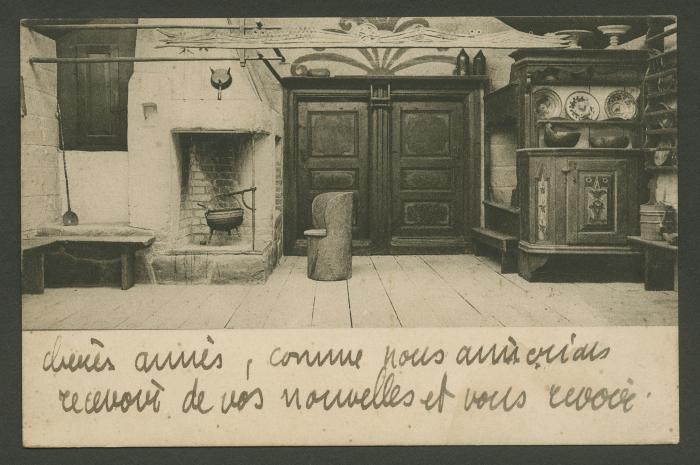 chères amies, comme nous aimerions
recevoir de vos nouvelles et vous revoir.